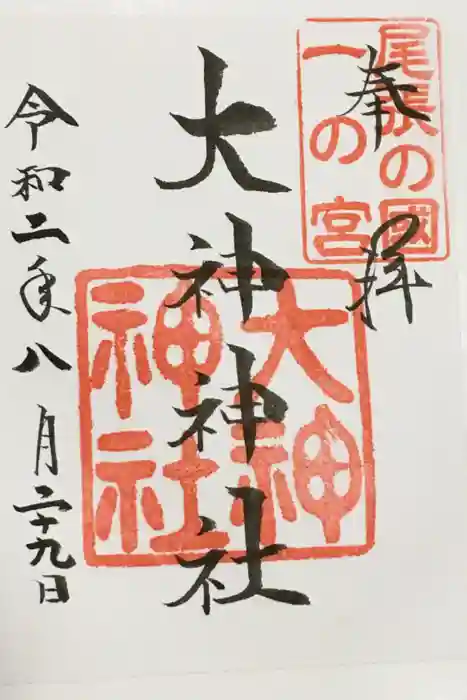 尾張の國
一の宮
奉拝
大神神社
大神
神社
令和二年八月二十九日